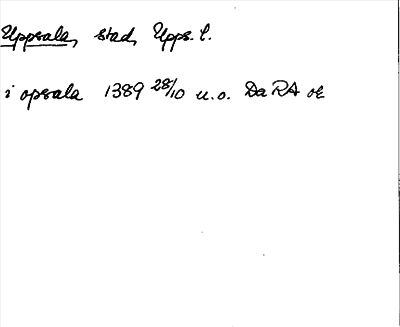 Uppsala, stad, Upps. l.
i opsala 1389 28/10 u.o. DaRA or